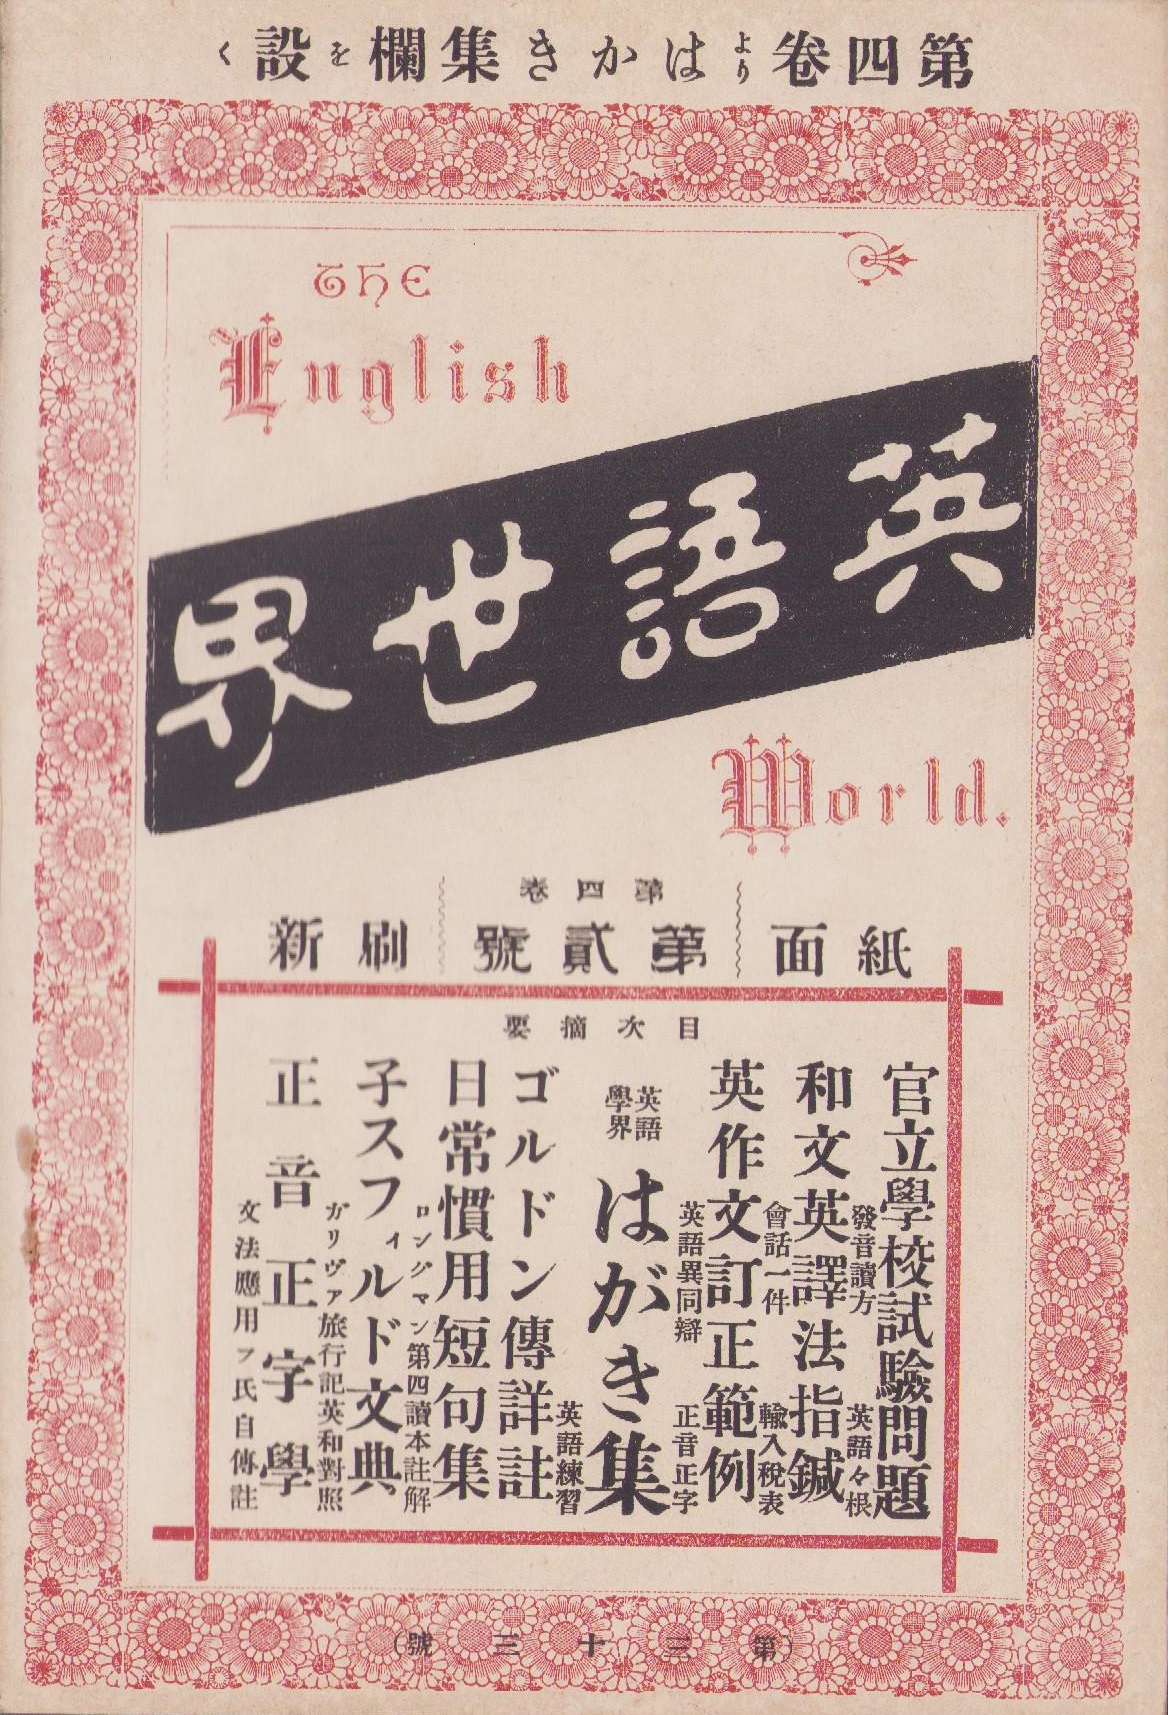 第四卷よりはかき集欄を設く
The
English
英語世界
World.
第四卷
紙面
第貳號
刷新
目次摘要
官立學校試驗問題
發音讀方
英語々根
和文英譯法指鍼
會話一件
輸入稅表
英作文訂正範例
英語異同辯
正音正字
英語學界
はがき集
英語練習
ゴルドン傳詳註
日常慣用短句集
ロングマン第四讀本註解
子スフィルド文典
ガリヴァ旅行記英和對照
正音正字學
文法應用フ氏自傳註
(第三十三號)